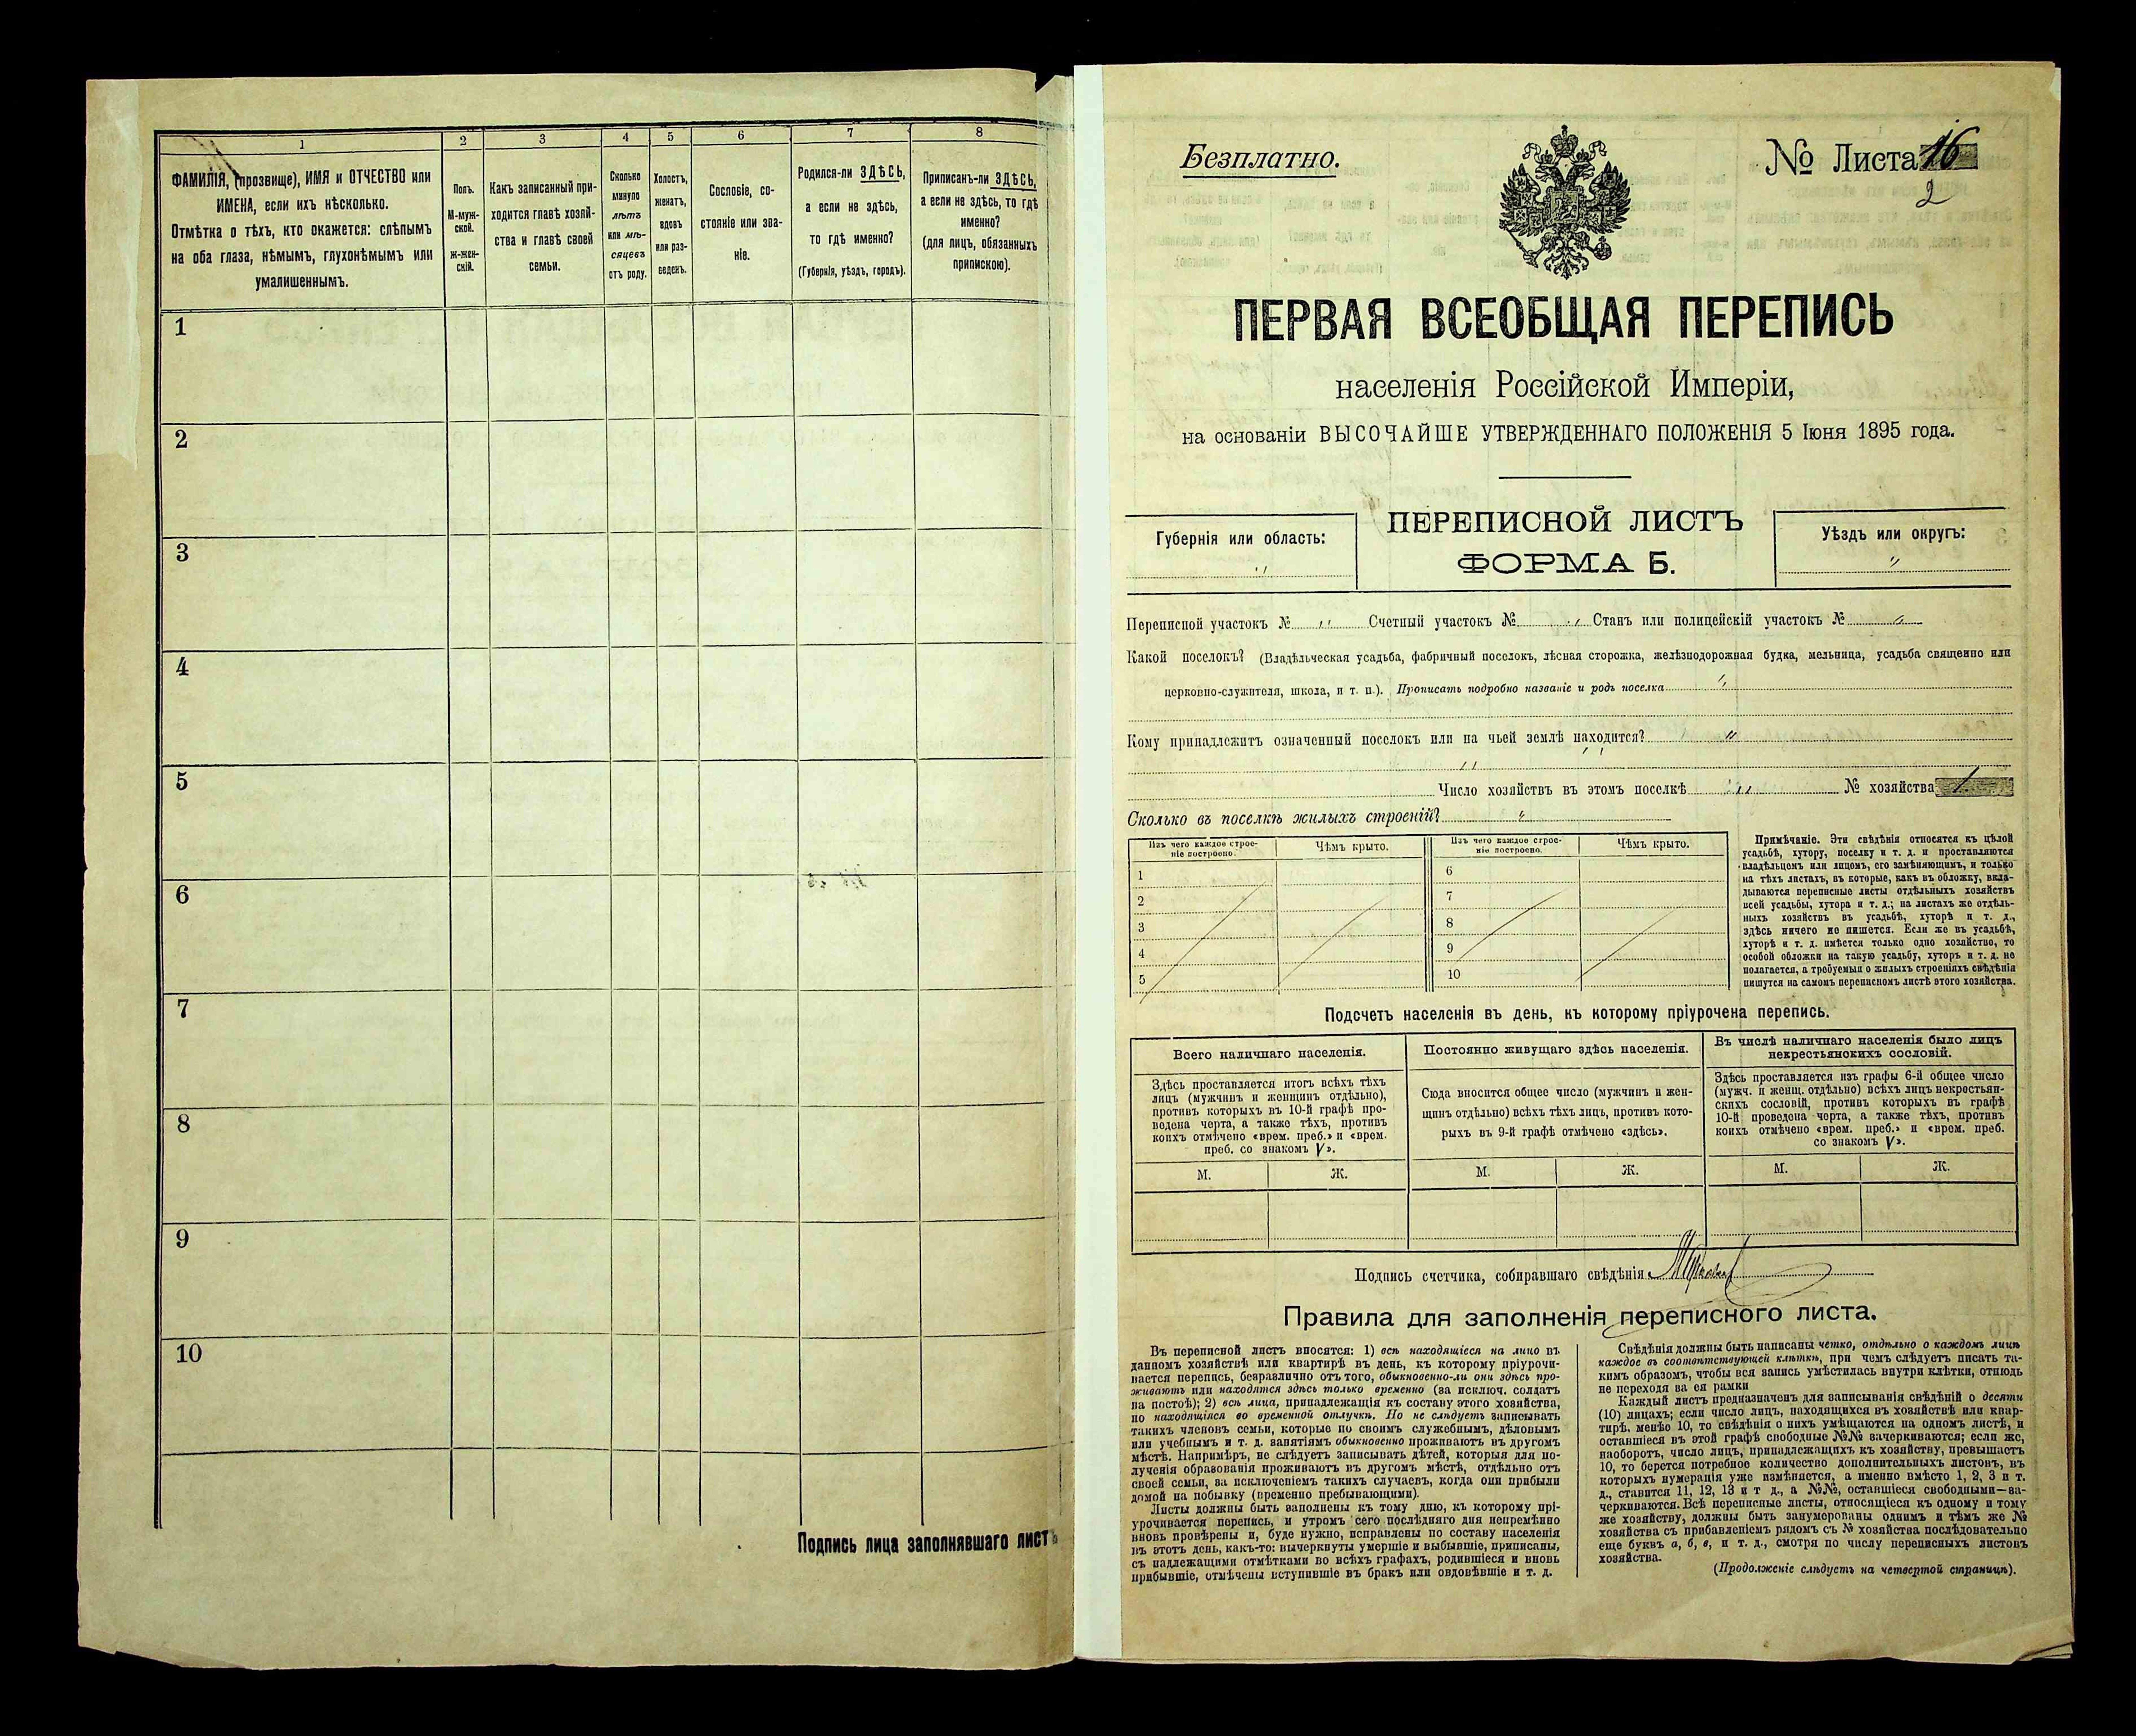 1
2
3
4
5
6
7
8
ФАМИЛІЯ, (прозвище), ИМЯ и ОТЧЕСТВО или
ИМЕНА, если ихъ нѣсколько.
Отмѣтка о тѣхъ, кто окажется: слѣпымъ
на оба глаза, нѣмымъ, глухонѣмымъ или
умалишеннымъ.
Полъ.
М-муж-
ской.
Ж-жен-
скій.
Какъ записанный при-
ходится главѣ хозяй-
ства и главѣ своей
семьи.
Сколько
минуло
лѣтъ
или мѣ-
сяцевъ
отъ роду.
Холостъ,
женатъ,
вдовъ
или раз-
веденъ.
Сословіе, со-
стояніе или зва-
ніе.
Родился-ли ЗДѢСЬ,
а если не здѣсь,
то гдѣ именно?
(Губернія, уѣздъ, городъ).
Приписанъ-ли ЗДѢСЬ,
а если не здѣсь, то гдѣ
именно?
(для лицъ, обязанныхъ
припискою).
1
2
3
4
5
6
7
8
9
10
Подпись лица заполнявшаго листъ
Безплатно.
№ Листа 16
2
ПЕРВАЯ ВСЕОБЩАЯ ПЕРЕПИСЬ
населенія Россійской Имперіи,
на основаніи ВЫСОЧАЙШЕ УТВЕРЖДЕННАГО ПОЛОЖЕНІЯ 5 Іюня 1895 года.
Губернія или область:
"
ПЕРЕПИСНОЙ ЛИСТЪ
ФОРМА Б.
Уѣздъ или округъ:
"
Переписной участокъ № " Счетный участокъ № " Станъ или полицейскій участокъ № "
Какой поселокъ? (Владѣльческая усадьба, фабричный поселокъ, лѣсная сторожка, желѣзнодорожная будка, мельница, усадьба священно или
церковно-служителя, школа, и т. п.). Прописать подробно названіе и родъ поселка "
Кому принадлежитъ означенный поселокъ или на чьей землѣ находится? "
"
Число хозяйствъ въ этомъ поселкѣ " № хозяйства 1
Сколько въ поселкѣ жилыхъ строеній? "
Изъ чего каждое строе-
ніе построено.
Чѣмъ крыто.
Изъ чего каждое строе-
ніе построено.
Чѣмъ крыто.
1
2
3
4
5
6
7
8
9
10
Примѣчаніе. Эти свѣдѣнія относятся къ цѣлой
усадьбѣ, хутору, поселку и т. д. и проставляются
владѣльцемъ или лицомъ, его замѣняющимъ, и только
на тѣхъ листахъ, въ которые, какъ въ обложку, вкла-
дываются переписные листы отдѣльныхъ хозяйствъ
всей усадьбы, хутора и т. д.; на листахъ же отдѣль-
ныхъ хозяйствъ въ усадьбѣ, хуторѣ и т. д.,
здѣсь ничего не пишется. Если же въ усадьбѣ,
хуторѣ и т. д. имѣется только одно хозяйство, то
особой обложки на такую усадьбу, хуторъ и т. д. не
полагается, а требуемыя о жилыхъ строеніяхъ свѣдѣнія
пишутся на самомъ переписномъ листѣ этого хозяйства.
Подсчетъ населенія въ день, къ которому пріурочена перепись.
Всего наличнаго населенія.
Здѣсь проставляется итогъ всѣхъ тѣхъ
лицъ (мужчинъ и женщинъ отдѣльно),
противъ которыхъ въ 10-й графѣ про-
ведена черта, а также тѣхъ, противъ
коихъ отмѣчено «врем. преб.» и «врем.
преб. со знакомъ V».
М.
Ж.
Постоянно живущаго здѣсь населенія.
Сюда вносится общее число (мужчинъ и жен-
щинъ отдѣльно) всѣхъ тѣхъ лицъ, противъ кото-
рыхъ въ 9-й графѣ отмѣчено «здѣсь».
М.
Ж.
Въ числѣ наличнаго населенія было лицъ
некрестьянскихъ сословій.
Здѣсь проставляется изъ графы 6-й общее число
(мужч. и женщ. отдѣльно) всѣхъ лицъ некрестьян-
скихъ сословій, противъ которыхъ въ графѣ
10-й проведена черта, а также тѣхъ, противъ
коихъ отмѣчено «врем. преб.» и «врем. преб.
со знакомъ V».
М.
Ж.
Подпись счетчика, собиравшаго свѣдѣнія
Правила для заполненія переписного листа.
Въ переписной листъ вносятся: 1) всѣ находящіеся на лицо въ
данномъ хозяйствѣ или квартирѣ въ день, къ которому пріурочи-
вается перепись, безразлично отъ того, обыкновенно-ли они здѣсь про-
живаютъ или находятся здѣсь только временно (за исключ. солдатъ
на постоѣ); 2) всѣ лица, принадлежащія къ составу этого хозяйства,
но находящіяся во временной отлучкѣ. Но не слѣдуетъ записывать
такихъ членовъ семьи, которые по своимъ служебнымъ, дѣловымъ
или учебнымъ и т. д. занятіямъ обыкновенно проживаютъ въ другомъ
мѣстѣ. Напримѣръ, не слѣдуетъ записывать дѣтей, которыя для по-
лученія образованія проживаютъ въ другомъ мѣстѣ, отдѣльно отъ
своей семьи, за исключеніемъ такихъ случаевъ, когда они прибыли
домой на побывку (временно пребывающими).
Листы должны быть заполнены къ тому дню, къ которому прі-
урочивается перепись, и утромъ сего послѣдняго дня непремѣнно
вновь провѣрены и, буде нужно, исправлены по составу населенія
въ этотъ день, какъ-то: вычеркнуты умершіе и выбывшіе, приписаны,
съ надлежащими отмѣтками во всѣхъ графахъ, родившіеся и вновь
прибывшіе, отмѣчены вступившіе въ бракъ или овдовѣвшіе и т. д.
Свѣдѣнія должны быть написаны четко, отдѣльно о каждомъ лицѣ
каждое въ соотвѣтствующей клѣткѣ, при чемъ слѣдуетъ писать та-
кимъ образомъ, чтобы вся запись умѣстилась внутри клѣтки, отнюдь
не переходя за ея рамки
Каждый листъ предназначенъ для записыванія свѣдѣній о десяти
(10) лицахъ; если число лицъ, находящихся въ хозяйствѣ или квар-
тирѣ, менѣе 10, то свѣдѣнія о нихъ умѣщаются на одномъ листѣ, и
оставшіеся въ этой графѣ свободные №№ зачеркиваются; если же,
наоборотъ, число лицъ, принадлежащихъ къ хозяйству, превышаетъ
10, то берется потребное количество дополнительныхъ листовъ, въ
которыхъ нумерація уже измѣняется, а именно вмѣсто 1, 2, 3 и т.
д., ставится 11, 12, 13 и т д., а №№, оставшіеся свободными—за-
черкиваются. Всѣ переписные листы, относящіеся къ одному и тому
же хозяйству, должны быть занумерованы однимъ и тѣмъ же №
хозяйства съ прибавленіемъ рядомъ съ № хозяйства послѣдовательно
еще буквъ а, б, в, и т. д., смотря по числу переписныхъ листовъ
хозяйства.
(Продолженіе слѣдуетъ на четвертой страницѣ).